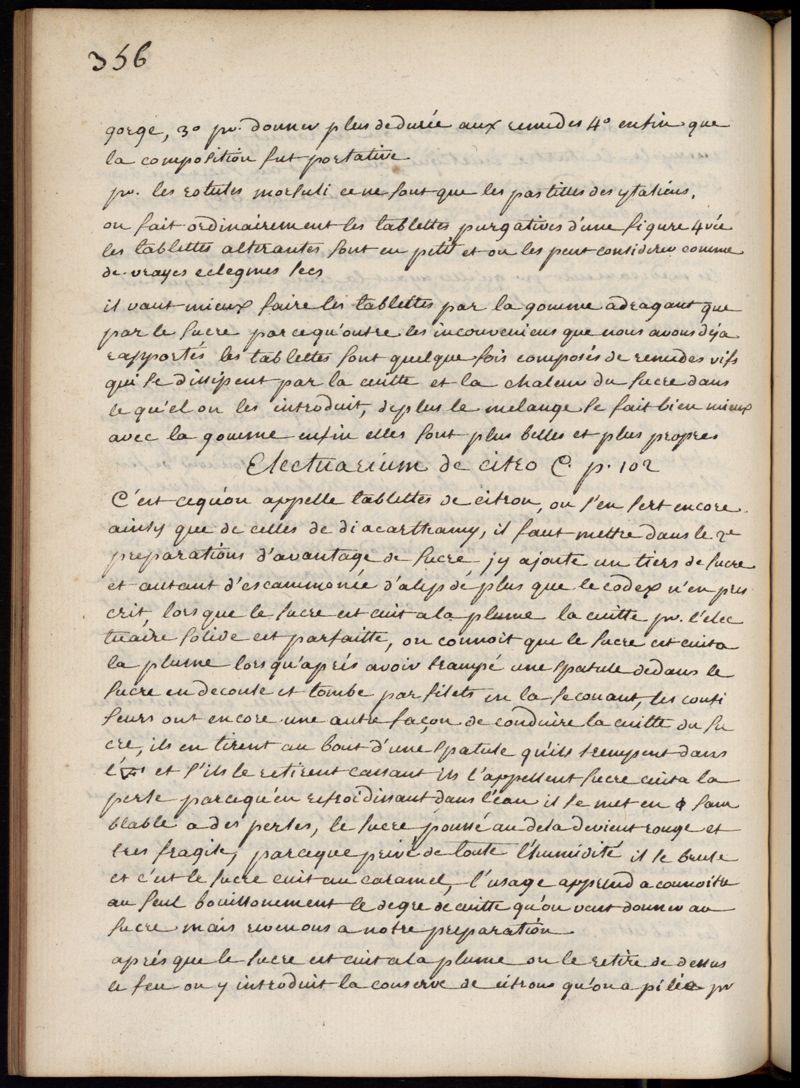 356
gorge, 3o pr. donner plus de durée aux remedes 4o enfin que
la composition fut portative
pr. les rotules morsuli ce ne sont que les pastilles des ytaliens.
on fait ordinairement les tablettes purgatives d'une figure 4rée
les tablettes alterantes sont en petit et on les peut considerer comme
de vrayes eclegmes secs
il vaut mieux faire les tablettes par la gomme adragant que
par le sucre parcequ'outre les inconveniens que nous avons deja
rapportés les tablettes sont quelque fois composés de remedes vifs
qui se dissipent par la cuitte et la chaleur du sucre dans
le qu'el on les introduit, deplus le melange se fait bien mieux
avec la gomme enfin elles sont plus belles et plus propres
Electuarium de citro C. p. 102
C'est cequ'on appelle tablettes de citron, on s'en sert encore
ainsy que de celles de diacarthamy, il faut mettre dans le 2e
preparations d'avantage de sucre jy ajoute un tiers de sucre
et autant d'escammonée d'alep de plus que le codex n'en pres
crit, lorsque le sucre est cuit a la plume la cuitte pr. l'elec
tuaire solide est parfaitte, on connoit que le sucre est cuit a
la plume lorsqu'aprés avoir trampé une spatule dedans le
sucre en decoule et tombe par filets en la secouant, les confi
seurs ont encore une autre façon de conduire la cuitte du su
cre, ils en tirent au bout d'une spatule qu'ils trempent dans
l'🜄 et s'ils le retirent cassant ils l'appellent sucre cuit a la
perle parcequ'en refroidissant dans l'eau il se met en sam
blable a des perles, le sucre poussé au dela devient rouge et
tres fragile, parceque privé de toute l'humidité il se brule
et c'est le sucre cuit au caramel, l'usage apprend a connoitre
au seul bouillonement le degre de cuitte qu'on veut donner au
sucre mais revenons a notre preparation
aprés que le sucre est cuit a la plume on le retire de dessus
le feu on y introduit la conserve de citrons qu'on a pilée pr